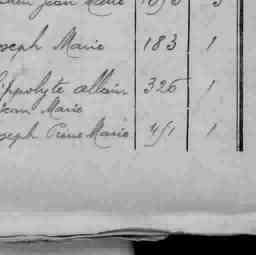 Jean Marie
Joseph Marie 183 1
Hippolyte allain 326 1
Jean Marie
Joseph Pierre Marie 451 1